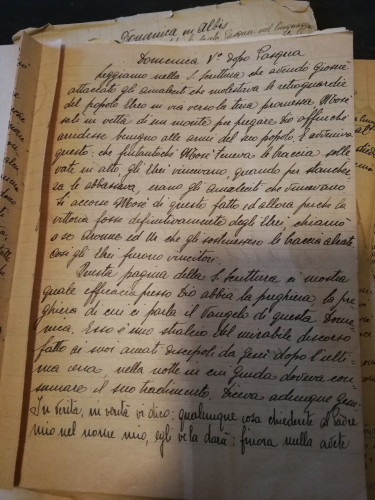 Domenica in Albis
Domenica Vª dopo Pasqua
Leggiamo nella S. Scrittura che avendo Giosuè
attaccato gli amaleciti che molestava le retroguardie
del popolo Ebreo in via verso la terra promessa Mosè
salì in vetta di un monte per pregare Dio affinché
arridesse benigno alle armi del suo popolo. E avveniva
questo: che fintantoché Mosè teneva le braccia solle
vate in alto, gli Ebrei vincevano, quando per stanchez
za le abbassava, erano gli amaleciti che vincevano
Si accorse Mosè di questo fatto ed allora perché la
vittoria fosse definitivamente degli Ebrei chiamò
a se Aronne ed Ur che gli sostenessero le braccia alzate,
così gli Ebrei furono vincitori.
Questa pagina della S. Scrittura ci mostra
quale efficacia presso Dio abbia la preghiera, la pre
ghiera di cui ci parla il Vangelo di questa Dome
nica. Esso è uno stralcio del mirabile discorso
fatto ai suoi amati discepoli da Gesù dopo l'ulti
ma cena, nella notte in cui Giuda doveva con
sumare il suo tradimento. Diceva adunque Gesù:
In verità, in verità vi dico: qualunque cosa chiederete al Padre
mio nel nome mio, egli ve la darà: finora nulla avete